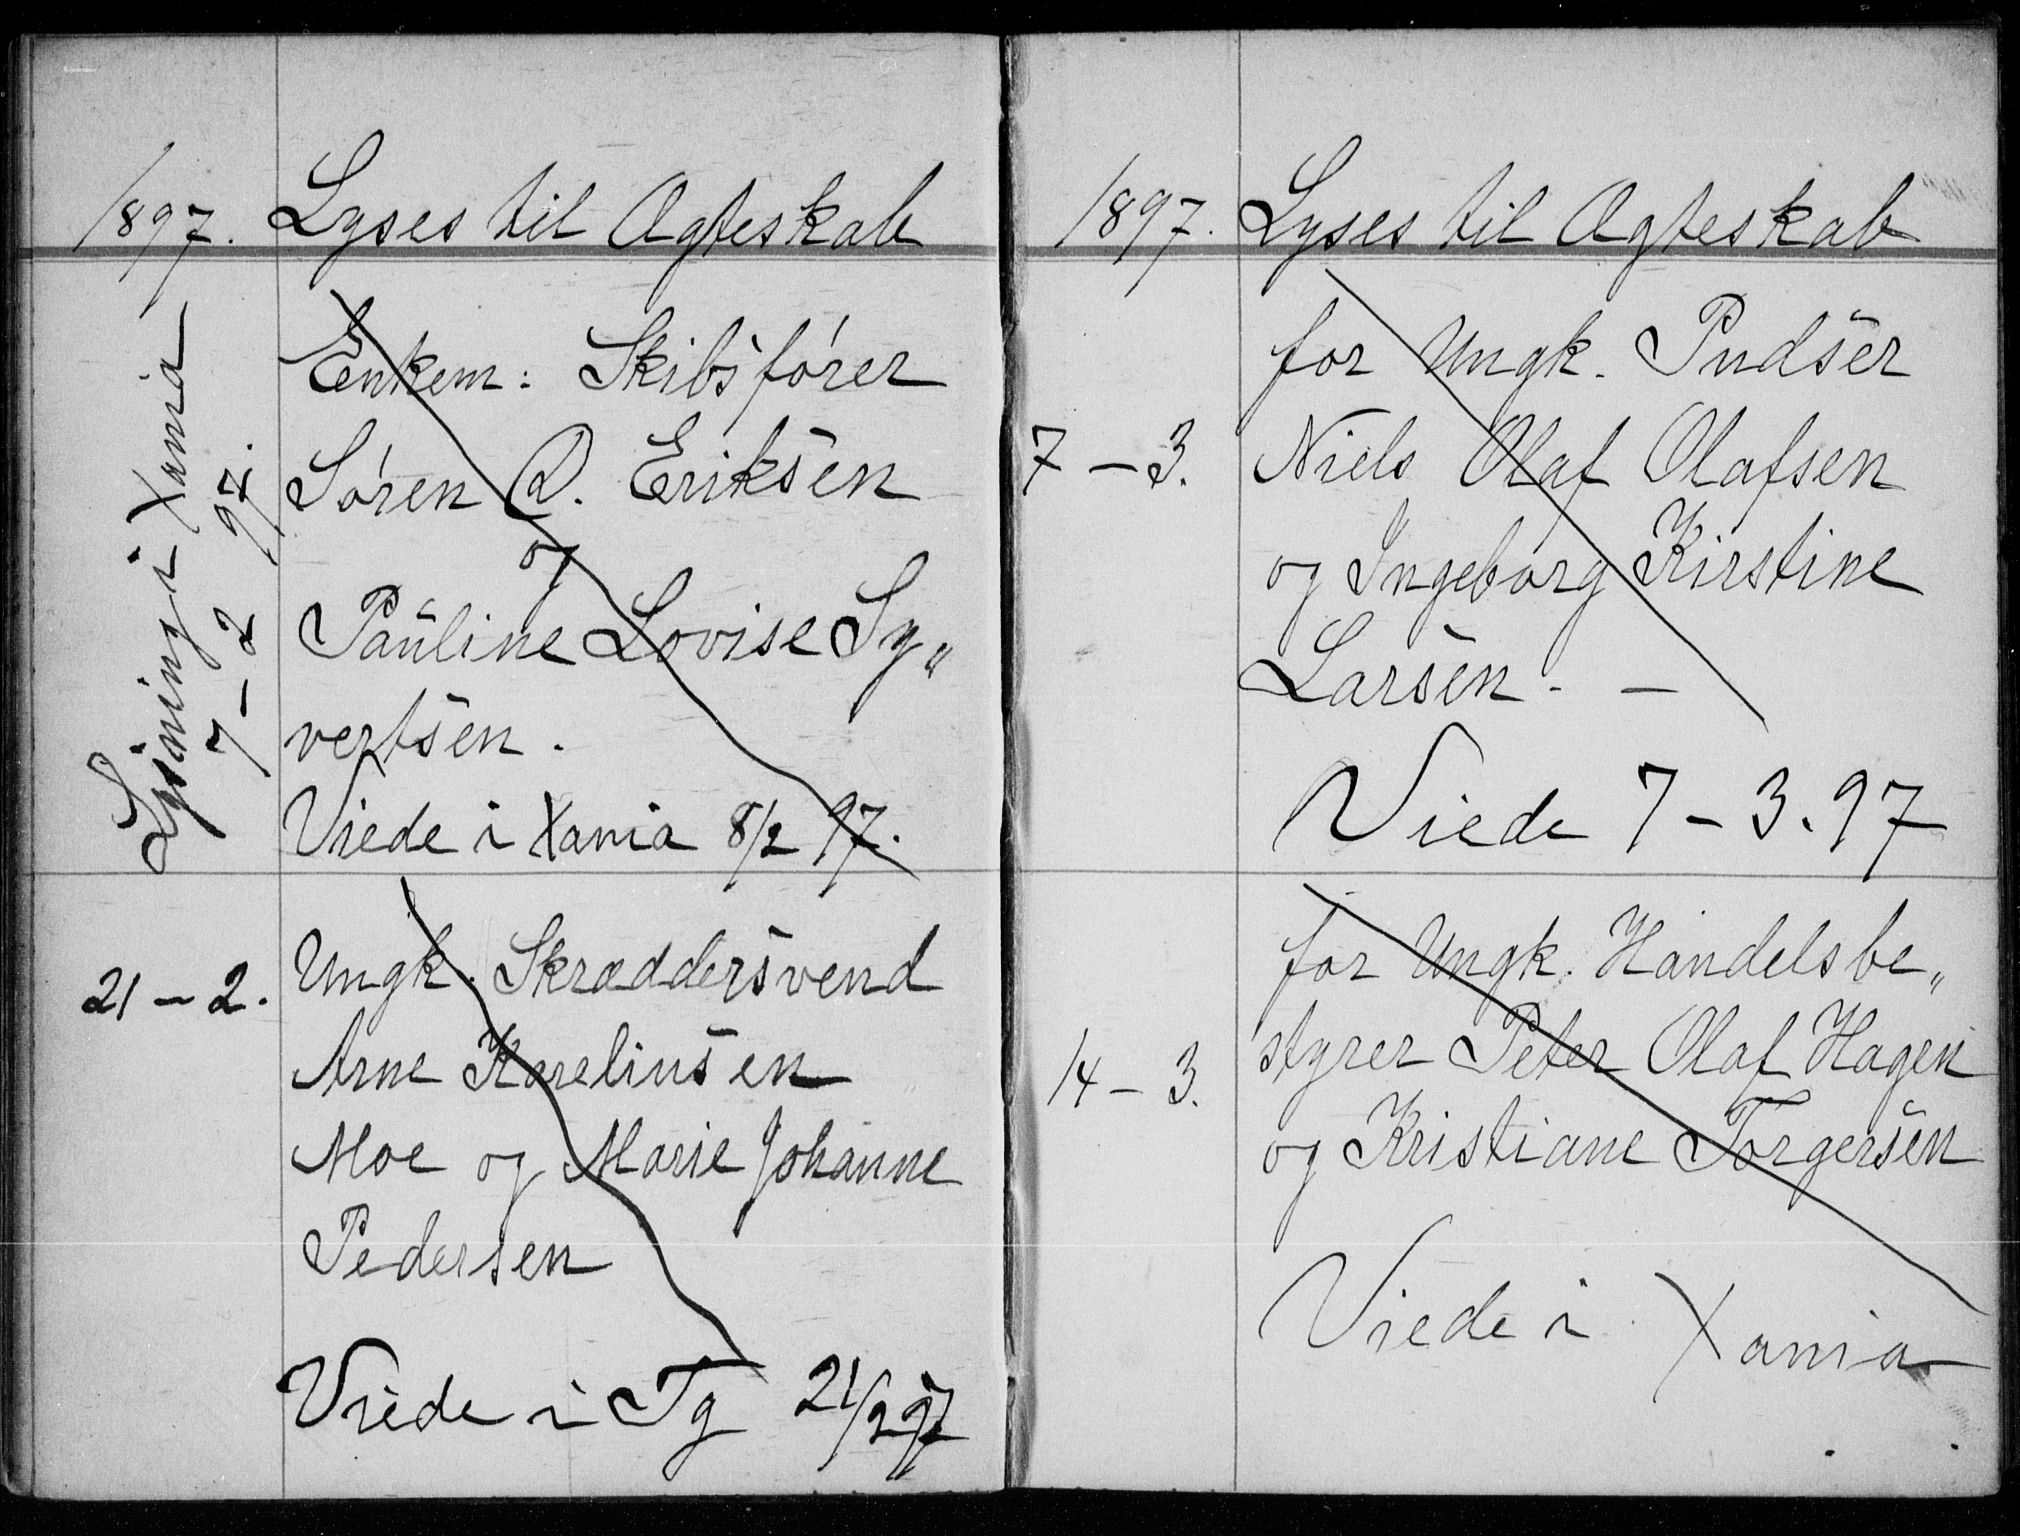 1897. Lyses til Ægteskab
Lysning i Xania
7 – 2 97.
Enkem: Skibsfører
Søren O. Eriksen
og
Pauline Lovise Sy„
vertsen.
Viede i Xania 8/2 97.
21 – 2. Ungk. Skræddersvend
Arne Kareliusen
Moe og Marie Johanne
Pedersen
Viede i Tg 21/2 97
1897. Lyses til Ægteskab
for Ungk. Pudser
7 – 3. Niels Olaf Olafsen
og Ingeborg Kirstine
Larsen. –
Viede 7 – 3. 97
for Ungk. Handelsbe„
14 – 3. styrer Peter Olaf Hagen
og Kristiane Torgersen
Viede i Xania